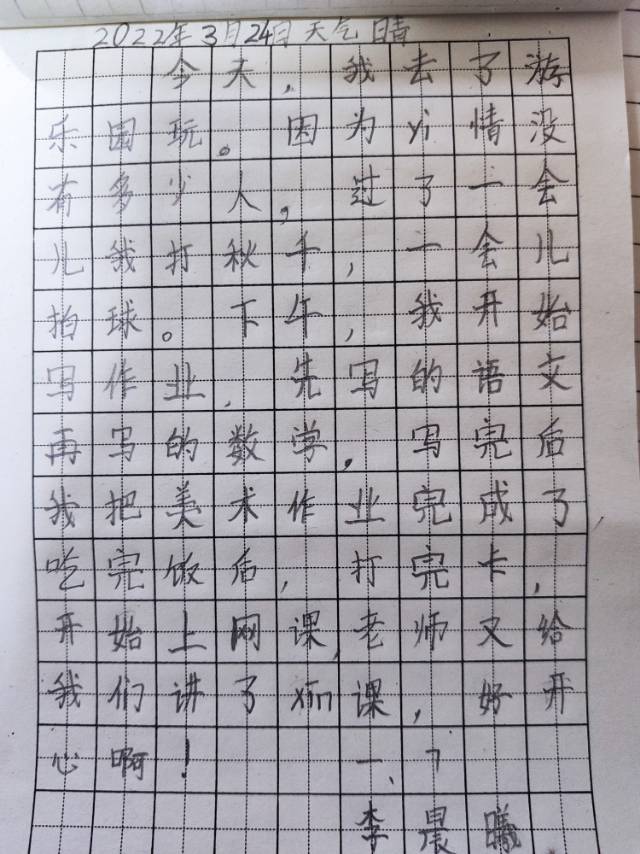 2022年3月24日天气晴
今天,我去了游
乐园玩。因为yi情没
有多少人,过了一会
儿我打秋千,一会儿
拍球。下午,我开始
写作业,先写的语文
再写的数学,写完后
我把美术作业完成了
吃完饭后,打完卡,
开始上网课,老师又给
我们讲了xin课,好开
心啊!一、7
李晨曦